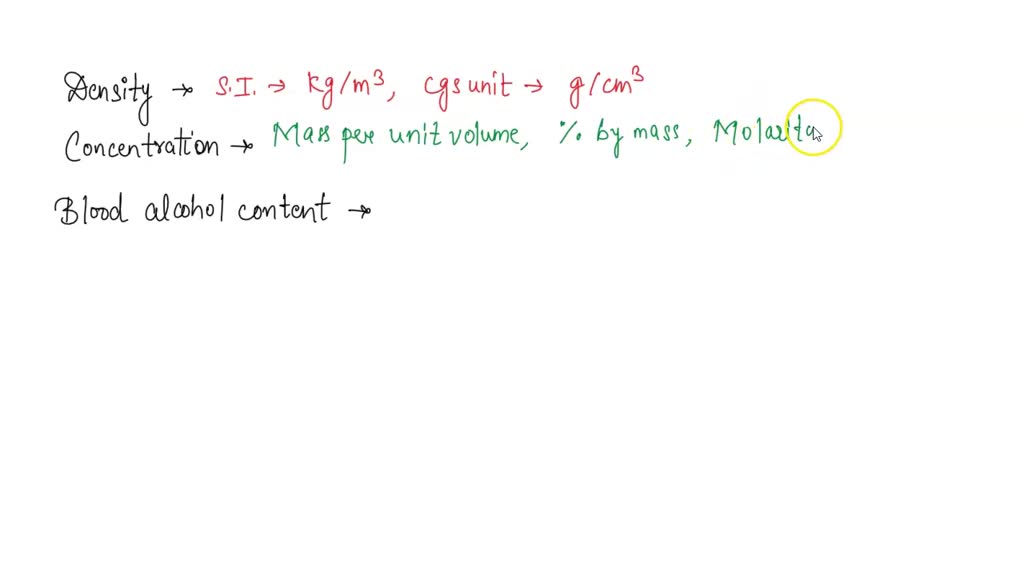 Density → S.I. → kg/m³, cgs unit → g/cm³
Concentration → Mass per unit volume, % by mass, Molarita
Blood alcohol content →